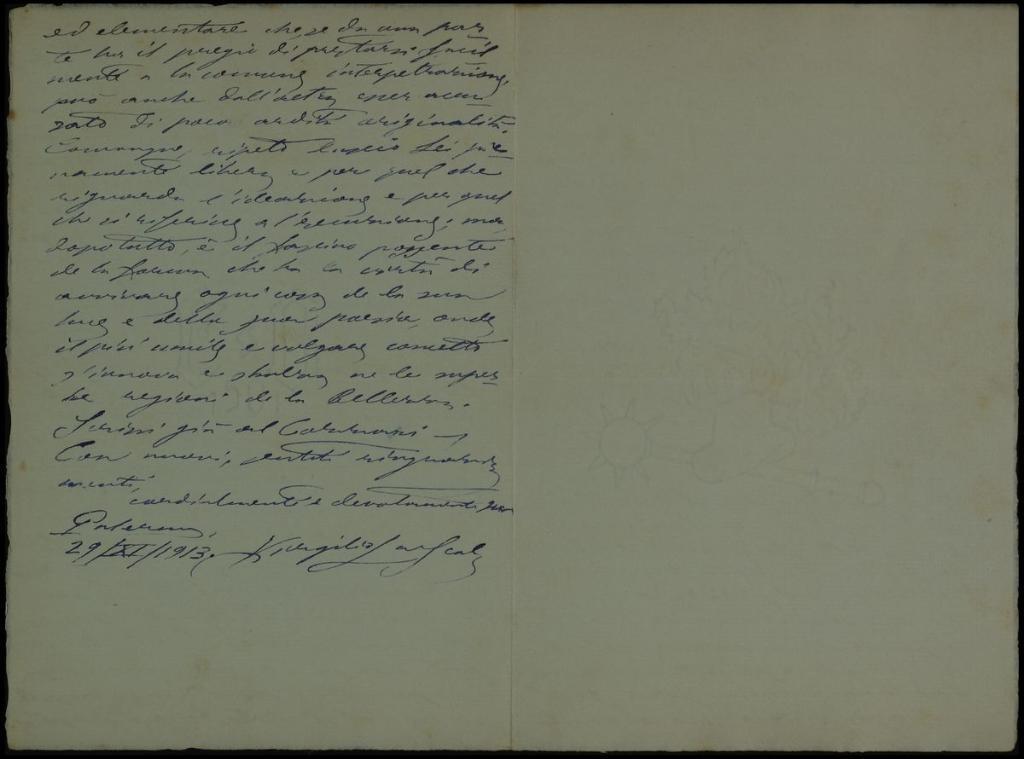 ed elementare che, se da una par-
te ha il pregio di prestarsi facil
mente a la comune interpetrazione,
può anche dall'altra esser accu-
sato di poca ardita originalità.
Comunque, ripeto lascio Lei pie-
namente libero e per quel che
riguarda l'ideazione e per quel
che si riferisce a l'esecuzione; ma,
dopotutto, è il fascino possente
de la forma che ha la virtù di
avvivare ogni cosa de la sua
luce e della sua poesia, onde
il più umile e volgare concetto
s'innova e sale ne le super-
be regioni de la Bellezza.
Scrissi già al
Con nuovi, sentiti ringrazia-
menti,
cordialmente e devotamente suo
Palermo,
29/XI/1913. Virgilio La Scola